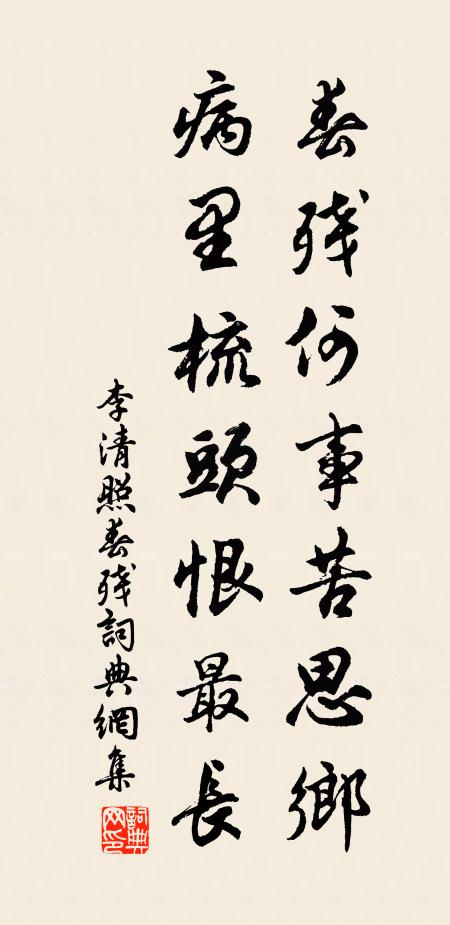 春残何事苦思鄉
病里梳頭恨最長
李清照春残詞典網集
詞典網印